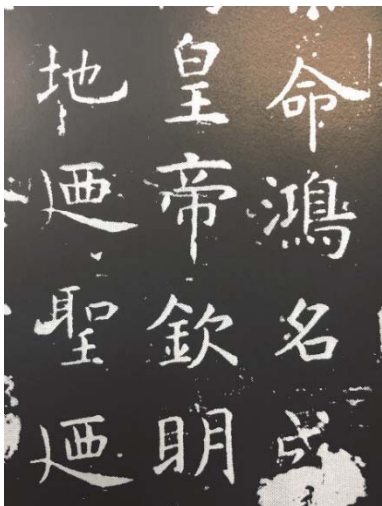 命鴻名
皇帝欽明
地廼聖廼